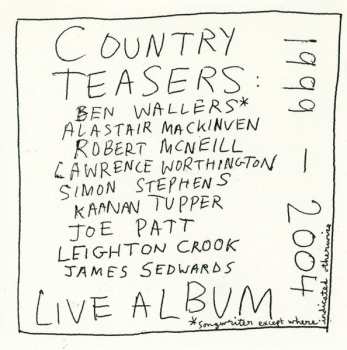 COUNTRY
TEASERS:
BEN WALLERS*
ALASTAIR MACKINVEN
ROBERT MCNEILL
LAWRENCE WORTHINGTON
SIMON STEPHENS
KAANAN TUPPER
JOE PATT
LEIGHTON CROOK
JAMES SEDWARDS
LIVE ALBUM
1999 - 2004
*songwriter except where indicated otherwise